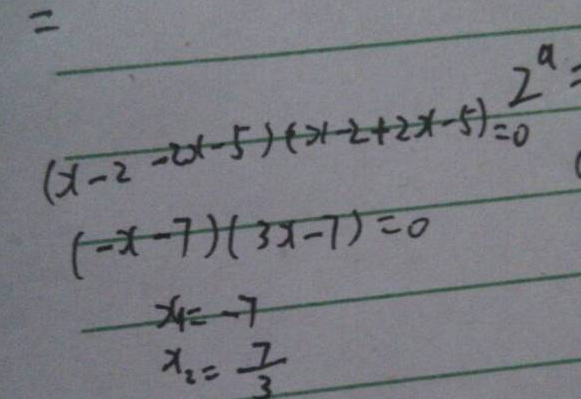 =
2^a =
(x-2-2x-5)(x-2+2x-5)=0
(-x-7)(3x-7)=0
x₁=-7
x₂=7/3